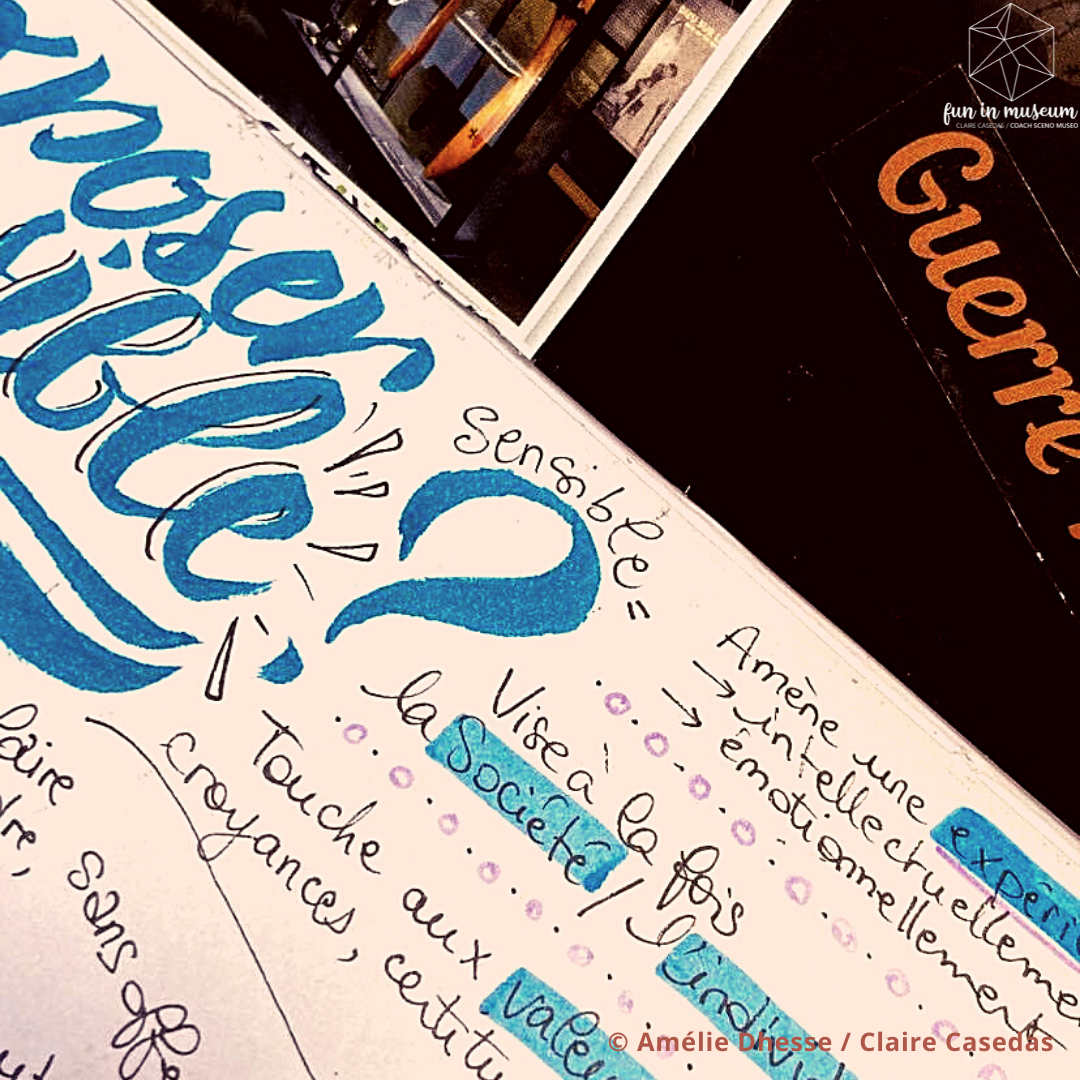 fun in museum
CLAIRE CASEDAS / COACH SCENO MUSEO
Guerre
poser
ible ?
Sensible"
Amène une expéri
→ intellectuelleme
→ émotionnellement
Vise à la fois
la société / l'indivi
Touche aux valeu
croyances, certitu
laire
dre, sans offe
© Amélie Dhesse / Claire Casedas